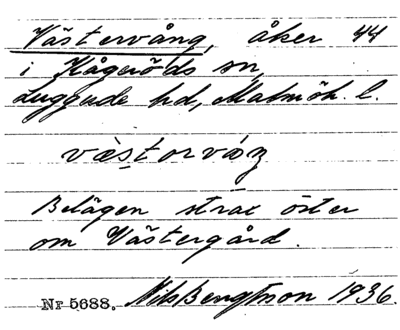 Västervång, åker 44
i Kågeröds sn,
Luggude hd, Malmöh. l.
væ̀storvåŋ
Belägen strax öster
om Västergård.
Nr 5688. Nils Bengtsson 1936.